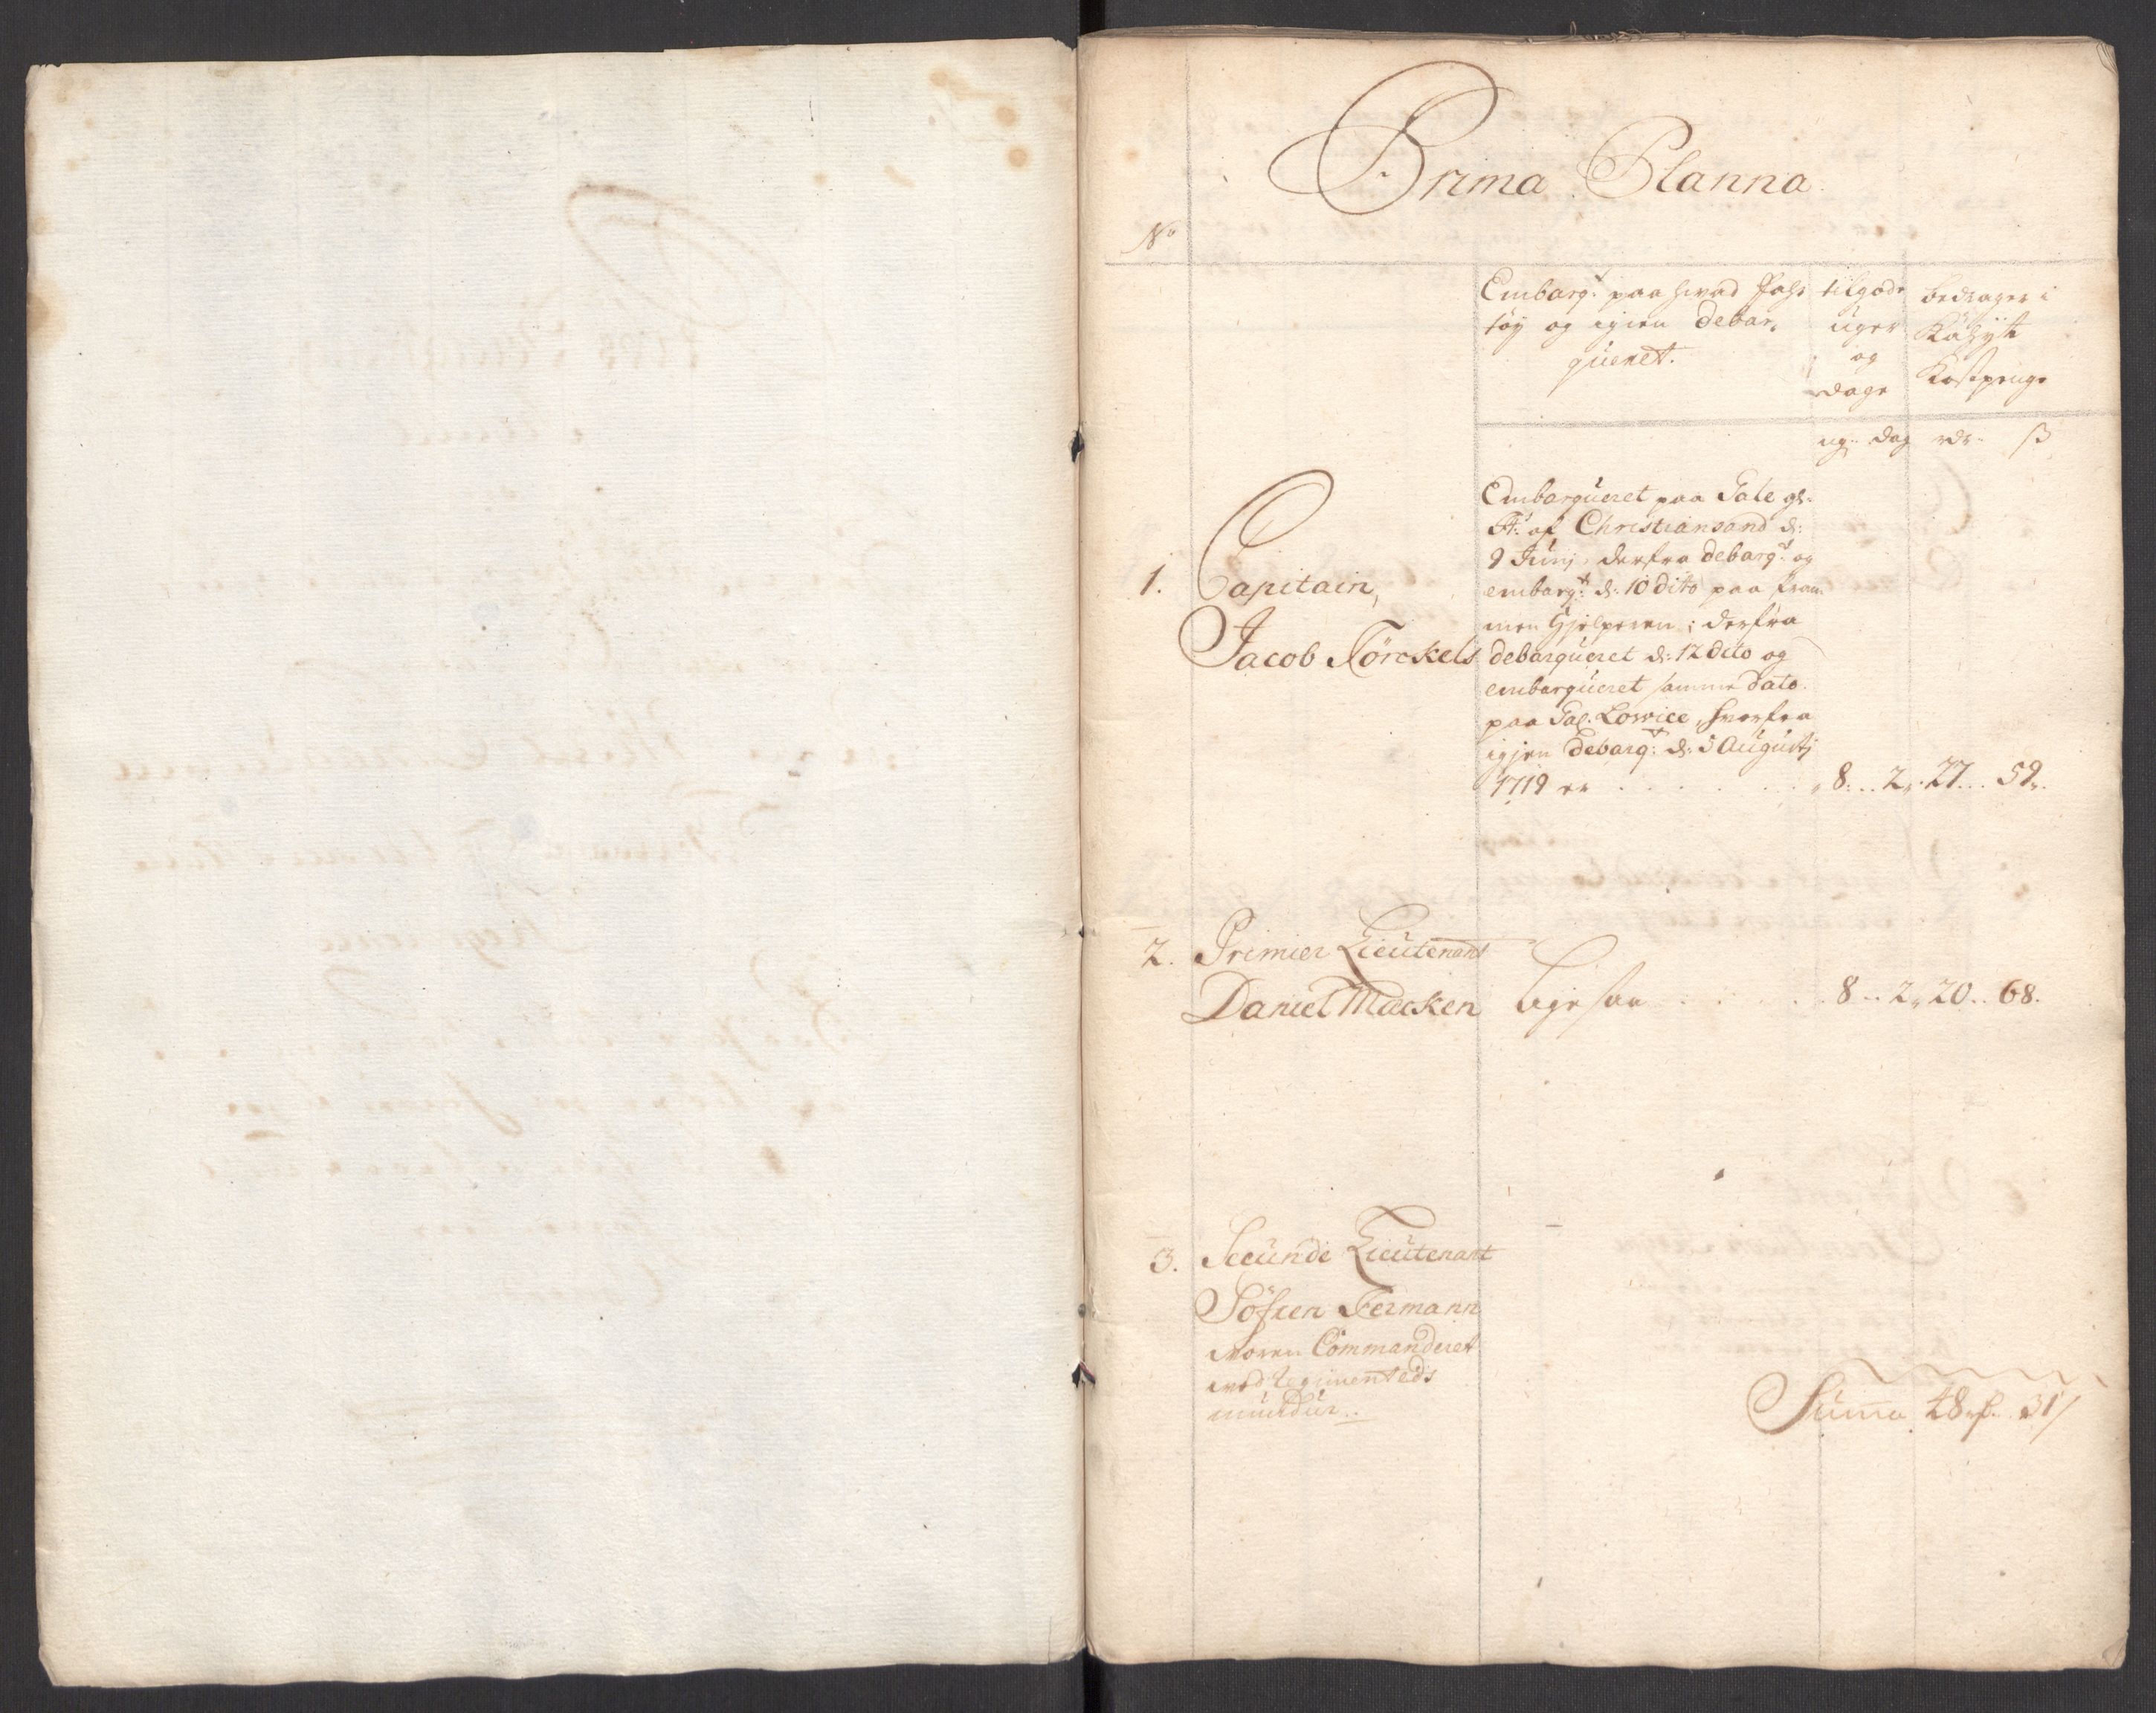 Prima Planna.
No
Embarqt paa hvad Fahr
töy og igien debar,
queret.
tilgode
uger
og
dage
bedrager i
Kostpenge
ug. dag rdr. ß
1. Capitain,
Jacob Törckels
Embarqueret paa Gale
af Christiansand d:
9 Junj, derfra debarqt og
embarqt d: 10 dito paa Pram
men Hjelperen; derfra
debarqueret d: 12 dito og
embarqueret samme dato
paa Gal. Lowice, hvorfra
igjen debarqt d: 5 Augustj
1719 er . . . . . 8 .. 2 .. 27 .. 59.
2. Primier Lieutenant
Daniel Macken ligesaa . . . . 8 .. 2 .. 20 .. 68.
3. Secunde Lieutenant
Söfren Fermann
voren Commanderet
ved Regimenteds
mundur..
Suma 48 31/